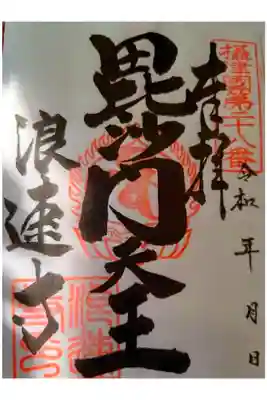 奉拝
攝津國第二十八番
令和 年 月 日
毘沙門天王
浪速寺